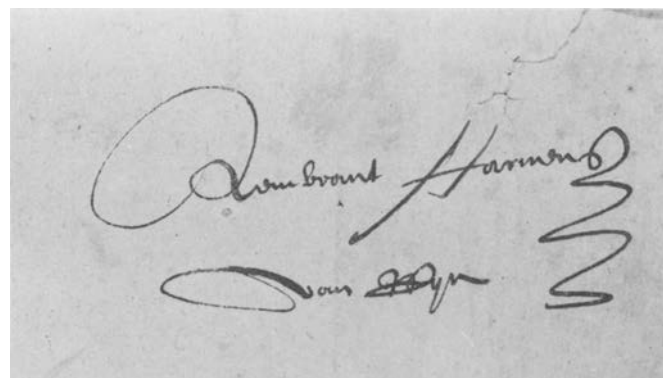 Rembrant Harmens
van Rijn